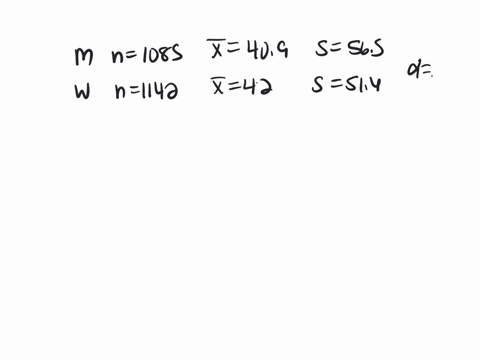 M n=1085 x̄=40.9 S=56.5
W n=1142 x̄=42 S=51.4 α=